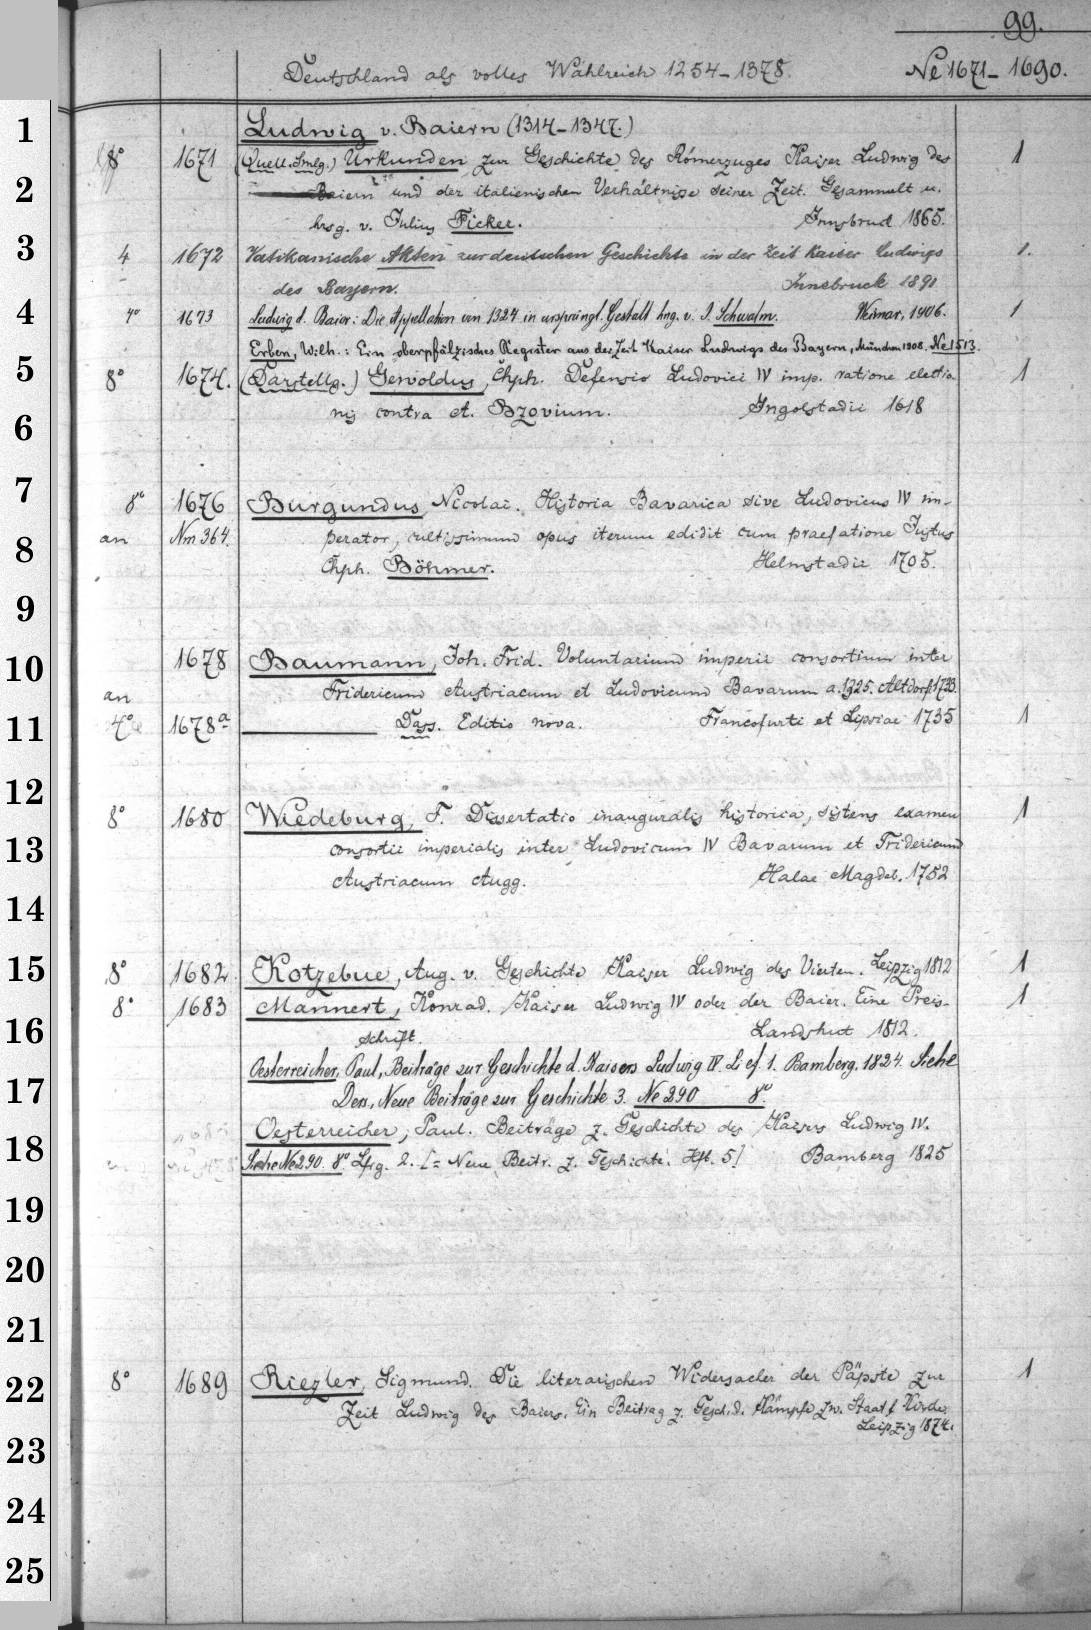 99.
Deutschland als volles Wahlreich 1254-1378. Ne 1671-1690.
1
Ludwig v. Baiern (1314-1347.)
8° 1671 (Quell. Smlg.) Urkunden zur Geschichte des Römerzuges Kaiser Ludwig des 1
2
Baiern und der italienischen Verhältnisse seiner Zeit. Gesammelt u.
hrsg. v. Julius Ficker. Innsbruck 1865.
3
4 1672 Vatikanische Akten zur deutschen Geschichte in der Zeit Kaiser Ludwigs 1.
des Bayern. Innsbruck 1891
4
4° 1673 Ludwig d. Baier: Die Appellation von 1324 in ursprüngl. Gestalt hrsg. v. J. Schwalm. Weimar, 1906. 1
Erben, Wilh.: Ein oberpfälzisches Register aus der Zeit Kaiser Ludwigs des Bayern, München 1908. Ne 1513.
5
8° 1674. (Darstellg.) Gewoldus, Chph. Defensio Ludovici IV imp. ratione electio 1
nis contra A. Bzovium. Ingolstadii 1618
6
7
8° 1676 Burgundus, Nicolai. Historia Bavarica sive Ludovicus IV im-
8
an Nm 364. perator, cultissimum opus iterum edidit cum praefatione Justus
Chph. Böhmer. Helmstadii 1705.
9
10
1678 Baumann, Joh. Frid. Voluntarium imperii consortium inter
an Fridericum Austriacum et Ludovicum Bavarum a. 1325. Altdorf 1733.
11
4° 1678a Dass. Editio nova. Francofurti et Lipsiae 1735 1
12
8° 1680 Wiedeburg, F. Dissertatio inauguralis historica, sistens examen 1
13
consortii imperialis inter Ludovicum IV Bavarum et Fridericum
Austriacum Augg. Halae Magdeb. 1752
14
15
8° 1682 Kotzebue, Aug. v. Geschichte Kaiser Ludwig des Vierten. Leipzig 1812 1
8° 1683 Mannert, Konrad. Kaiser Ludwig IV oder der Baier. Eine Preis- 1
16
schrift. Landshut 1812.
Oesterreicher, Paul, Beiträge zur Geschichte d. Kaisers Ludwig IV. Lief. 1. Bamberg, 1824. Siehe
17
Ders., Neue Beiträge zur Geschichte 3. Ne 290 8°.
Oesterreicher, Paul. Beiträge z. Geschichte des Kaisers Ludwig IV.
18
Siehe Ne 290. 8° Lfrg. 2. [= Neue Beitr. z. Geschichte. Hft. 5] Bamberg 1825
19
20
21
22
8° 1689 Riezler, Sigmund. Die literarischen Widersacher der Päpste zur 1
Zeit Ludwig des Baiers. Ein Beitrag z. Gesch. d. Kämpfe zw. Staat & Kirche
Leipzig 1874.
23
24
25